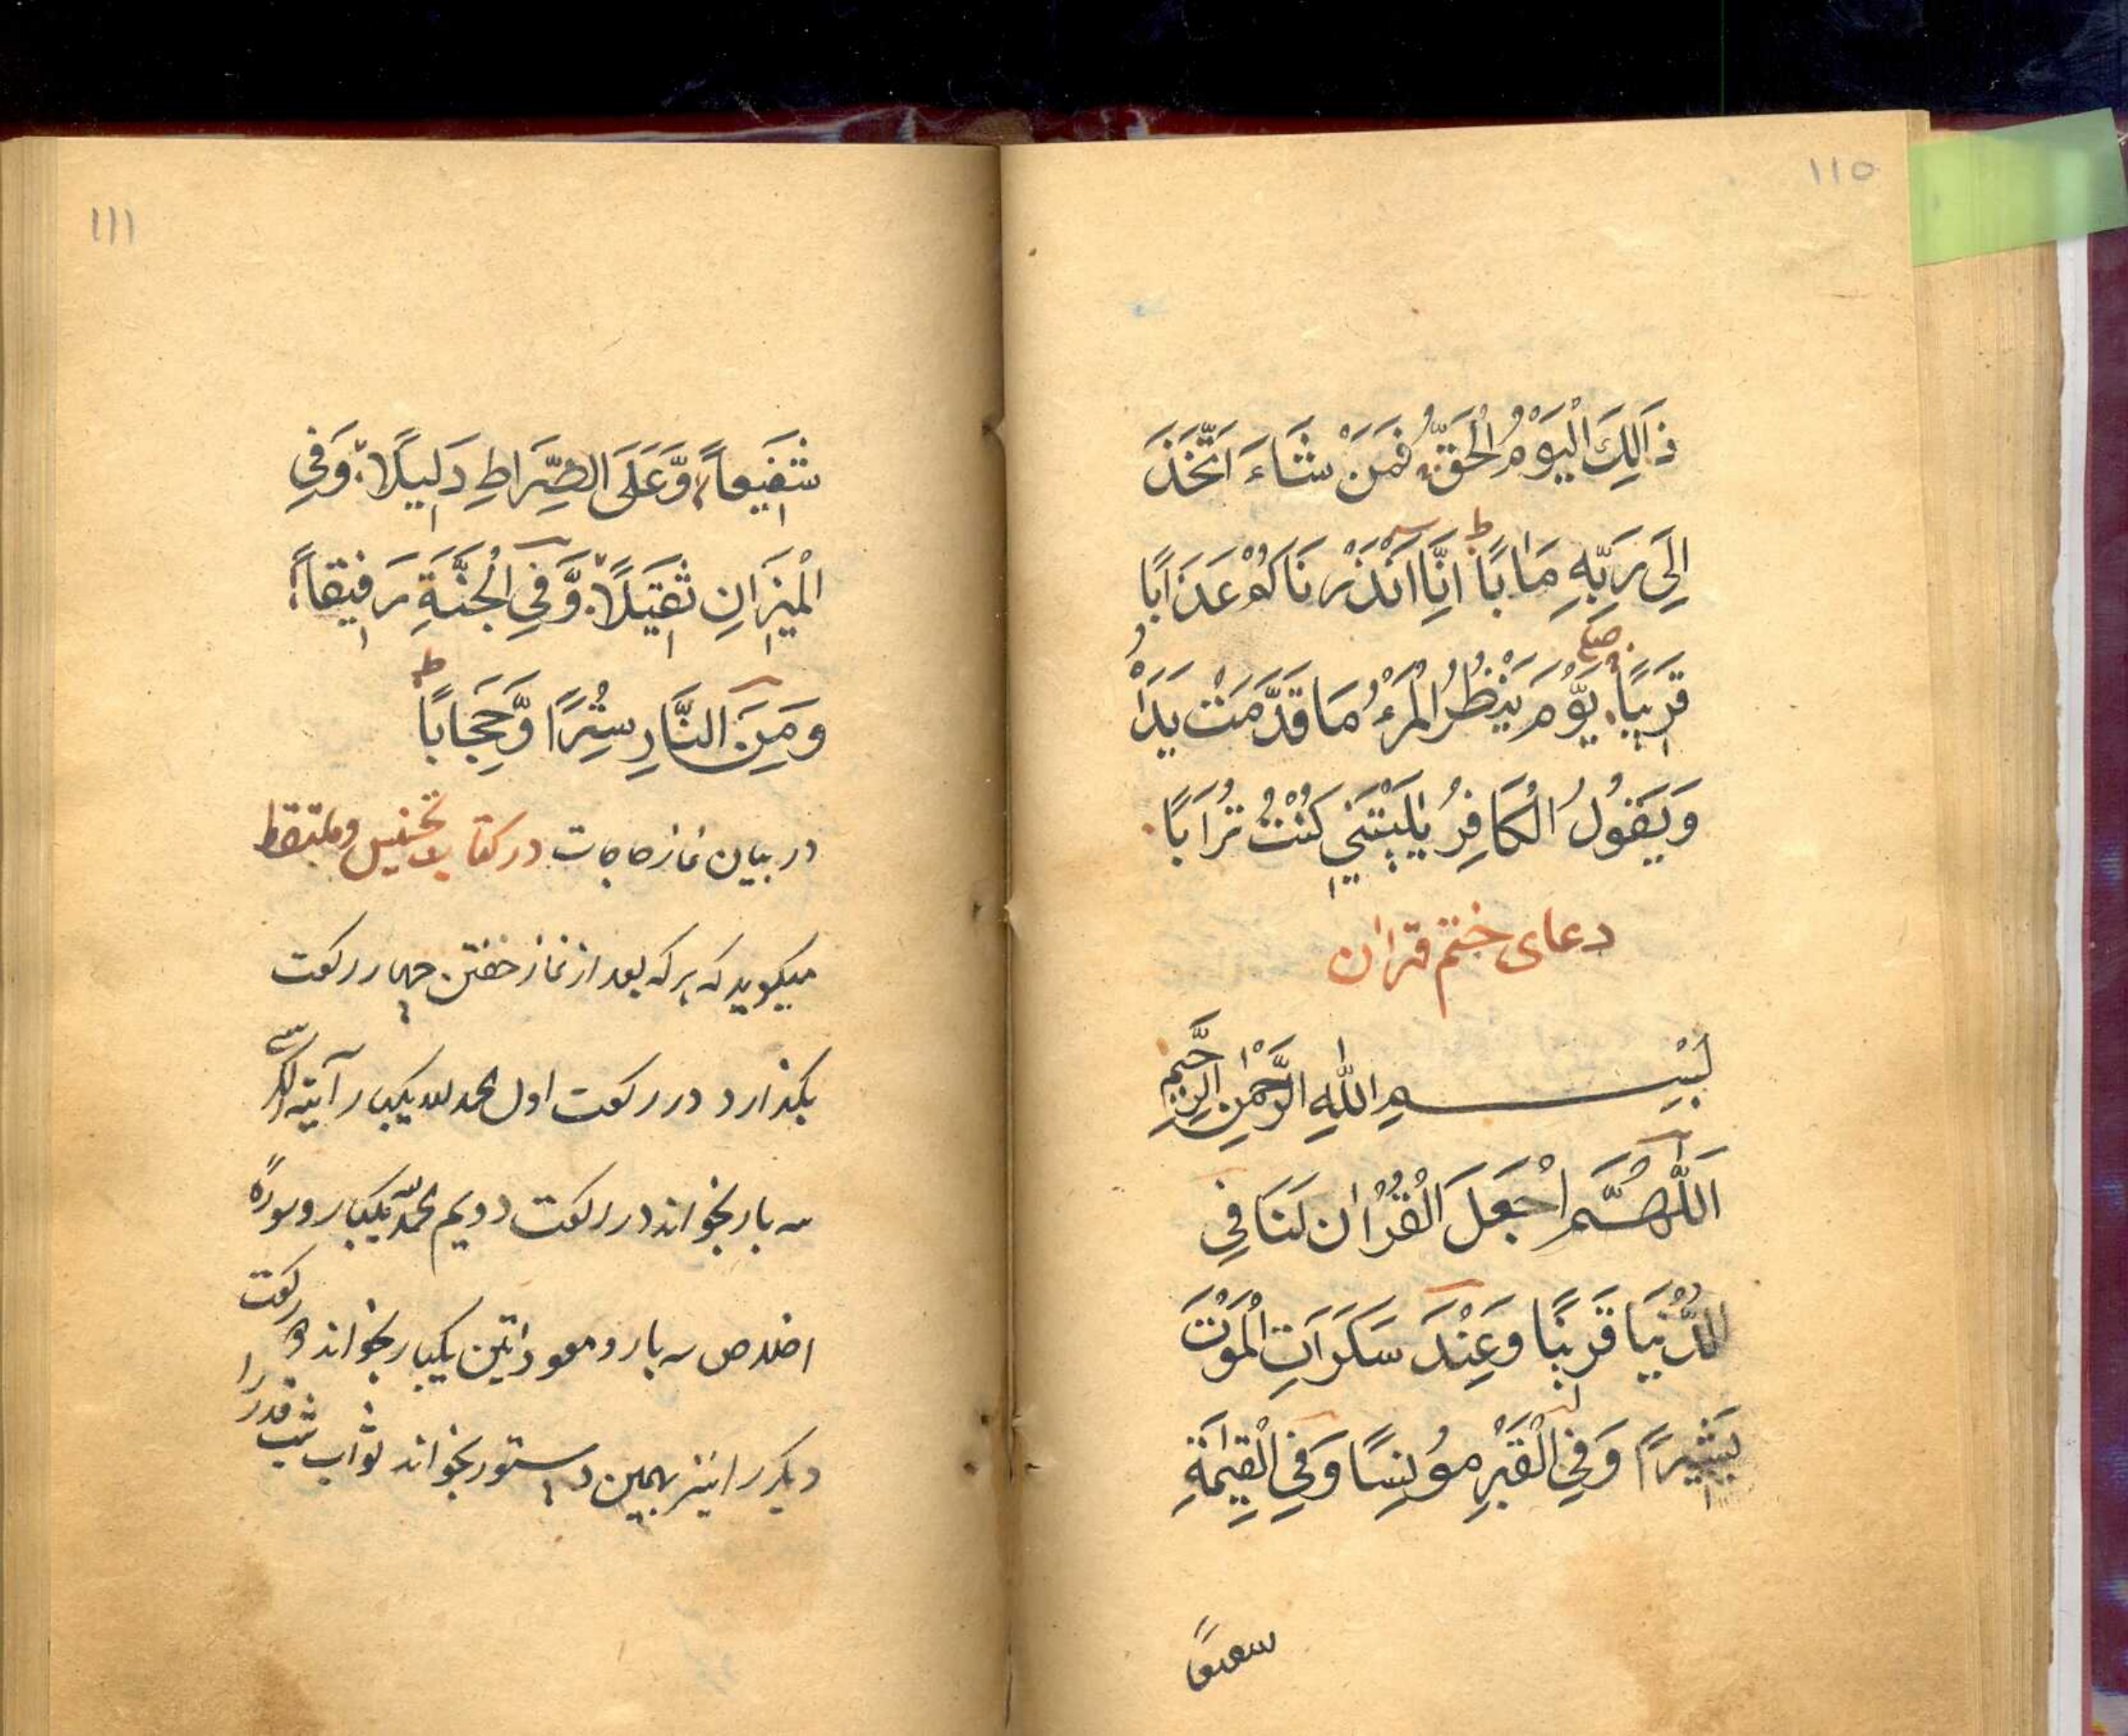 110
ذَالِكَ الْيَوْمُ الْحَقُّ فَمَنْ شَاءَ اتَّخَذَ
اِلَى رَبِّهِ مَاٰبًا ط اِنَّا اَنْذَرْنَاكُمْ عَذَابًا
قَرِيبًا صلے يَّوْمَ يَنْظُرُ الْمَرْءُ مَا قَدَّمَتْ يَدَاهُ
وَيَقُولُ الْكَافِرُ يٰلَيْتَنِي كُنْتُ تُرَابًا
دعای ختم قران
بِسْمِ اللهِ الرَّحْمٰنِ الرَّحِيمِ
اَللّٰهُمَّ اجْعَلَ الْقُرْاٰن لَنَا فِي
الدُّنْيَا قَرِيْنًا وَعِنْدَ سَكَرَاتِ الْمَوْتِ
بَشِيْرًا وَفِي الْقَبْرِ مُوْنِسًا وَفِي الْقِيٰمَةِ
شفیعاً
111
شَفِيعاً وَّعَلَى الصِّرَاطِ دَلِيلًا وَفِي
الْمِيْزَانِ ثَقِيْلًا وَّفِي الْجَنَّةِ رَفِيْقاً
وَمِنَ النَّارِ سِتْرًا وَّحِجَابًا ط
در بیان نماز حاجات در کتاب تجنیس و ملتقط
میکوید که هرکه بعد از نماز خفتن چهار رکعت
بکذارد در رکعت اول الحمد لله یکبار آیته الکرسی
سه بار بخواند در رکعت دویم الحمد یکبار و سورهٔ
اخلاص سه بار و معوذاتین یکبار بخواند دو رکعت
دیکر را نیز بهمین دستور بخواند ثواب شب قدر را